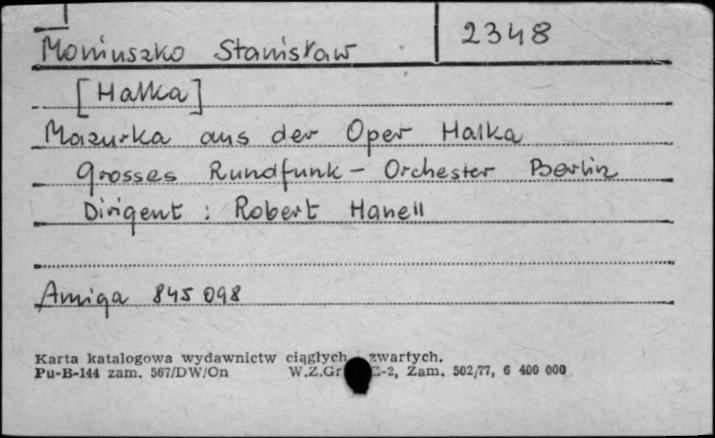 Moniuszko Stanisław 2348
[Halka]
Mazurka aus der Oper Halka
Grosses Rundfunk - Orchester Berlin
Dirigent : Robert Hanell
Amiga 845 098
Karta katalogowa wydawnictw ciągłych zwartych.
Pu-B-144 zam. 567/DW/On W.Z.Gr -2, Zam. 502/77, 6 400 000